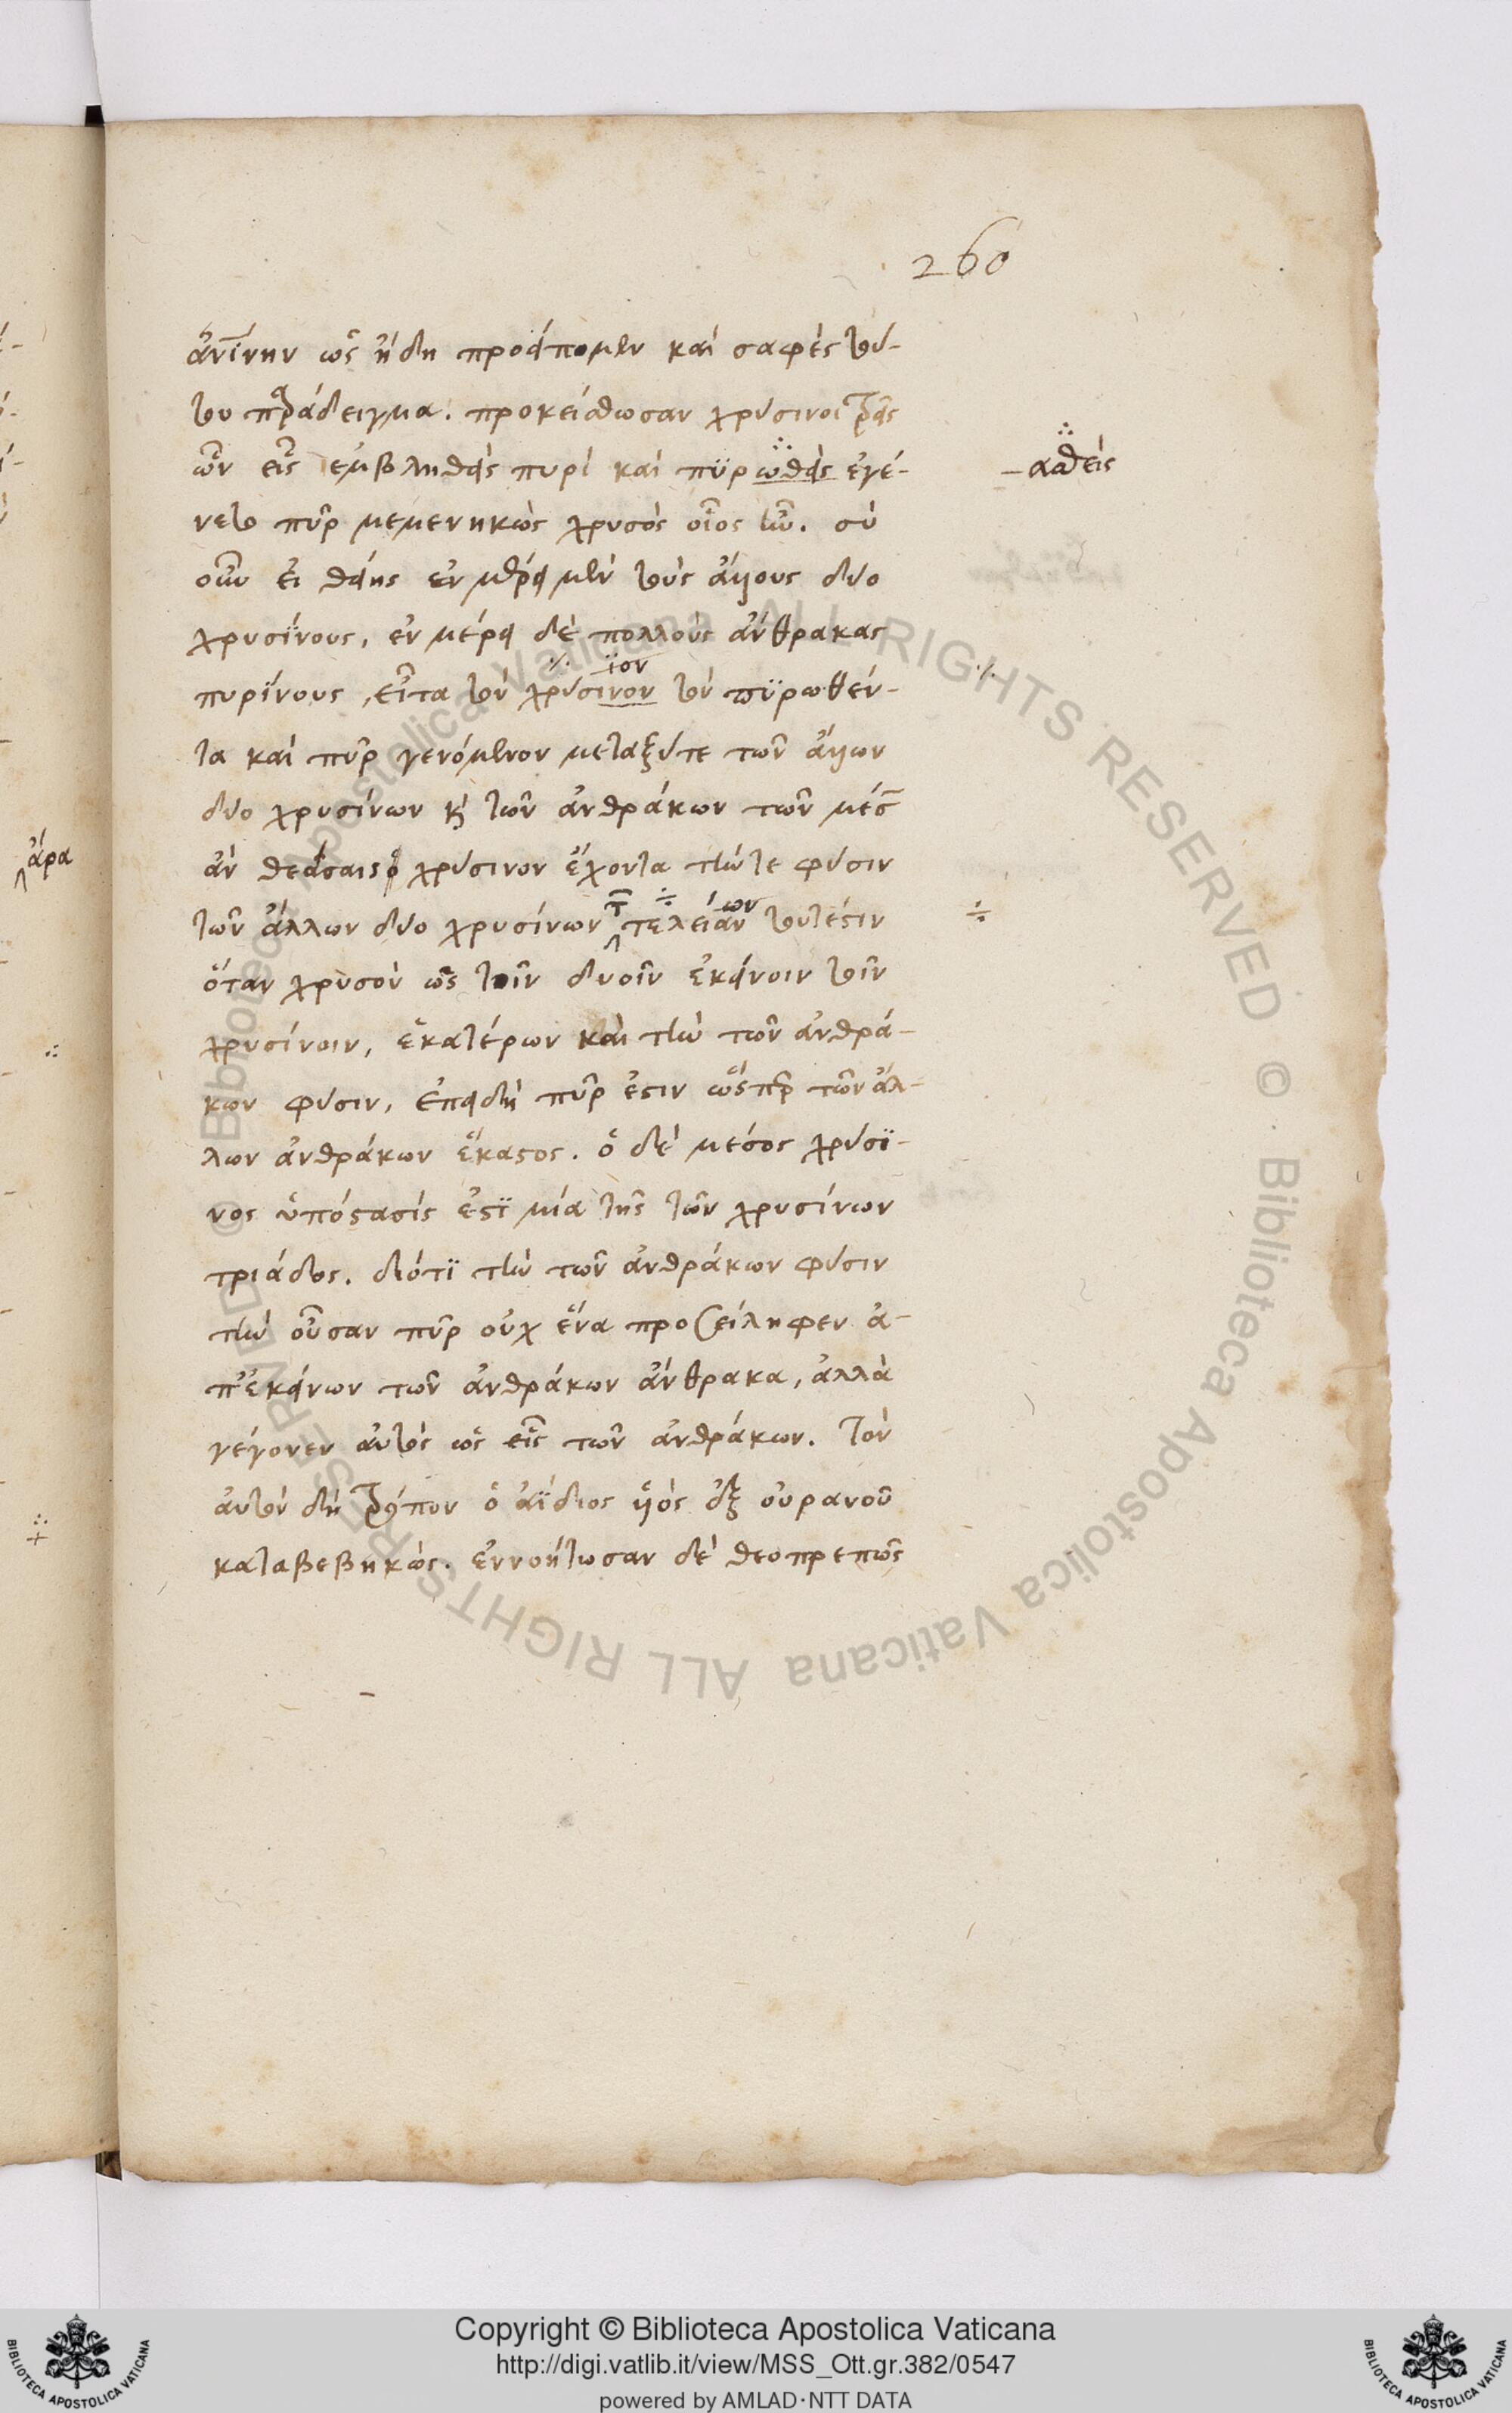 260
ἀντίνην ὡς ἤδη προείπομεν καὶ σαφὲς τού-
του παράδειγμα. προκείσθωσαν χρύσινοι τρεῖς
ὧν εἷς ἐμβληθεὶς πυρὶ καὶ πϋρωθεὶς ἐγέ-
-ασθεὶς
νετο πῦρ μεμενηκὼς χρυσὸς οἷος ἦν. σὺ
οὖν εἰ θείης ἐν μέρει μὲν τοὺς ἄλλους δύο
χρυσίνους, ἐν μέρει δὲ πολλοὺς ἄνθρακας
ϊον
πυρίνους, εἶτα τὸν χρύσινον τὸν πϋρωθέν-
τα καὶ πῦρ γενόμενον μεταξύ τε τῶν ἄλλων
δύο χρυσίνων καὶ τῶν ἀνθράκων τῶν
ἄρα
ἂν θεάσαιο χρύσινον ἔχοντα τήν τε φύσιν
ων
τῶν ἄλλων δύο χρυσίνων τελείαν τουτέστιν
ὅταν χρυσὸν ὡς τοῖν δυοῖν ἐκείνοιν τοῖν
χρυσίνοιν, ἑκατέρων καὶ τὴν τῶν ἀνθρά-
κων φύσιν, ἐπειδὴ πῦρ ἐστιν ὥσπερ τῶν ἄλ-
λων ἀνθράκων ἕκαστος. ὁ δὲ μέσος χρύσϊ-
νος ὑπόστασίς ἐστϊ μία τῆς τῶν χρυσίνων
τριάδος. διότϊ τὴν τῶν ἀνθράκων φύσιν
τὴν οὖσαν πῦρ οὐχ ἕνα προσείληφεν ἀ-
π' ἐκείνων τῶν ἀνθράκων ἄνθρακα, ἀλλὰ
γέγονεν αὐτὸς ὡς εἷς τῶν ἀνθράκων. Τὸν
αὐτὸν δὴ τρόπον ὁ ἀΐδιος υἱὸς ἐξ οὐρανοῦ
καταβεβηκώς. ἐννοήτωσαν δὲ θεοπρεπῶς
Copyright © Biblioteca Apostolica Vaticana
http://digi.vatlib.it/view/MSS_Ott.gr.382/0547
powered by AMLAD·NTT DATA
BIBLIOTECA APOSTOLICA VATICANA
BIBLIOTECA APOSTOLICA VATICANA
© Biblioteca Apostolica Vaticana ALL RIGHTS RESERVED © Biblioteca Apostolica Vaticana ALL RIGHTS RESERVED